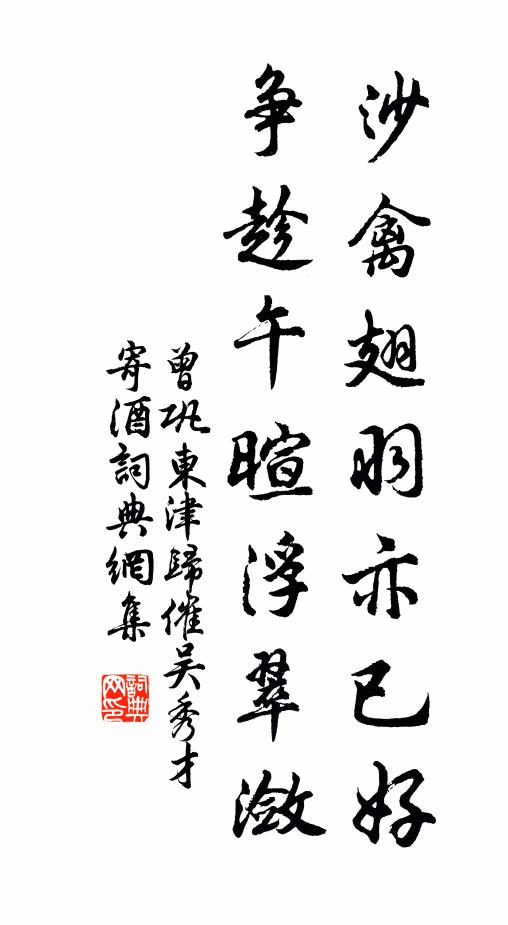 沙禽翅羽亦已好
争趁午暄浮翠潋
曾巩東津歸催吴秀才
寄酒詞典網集
詞典网印